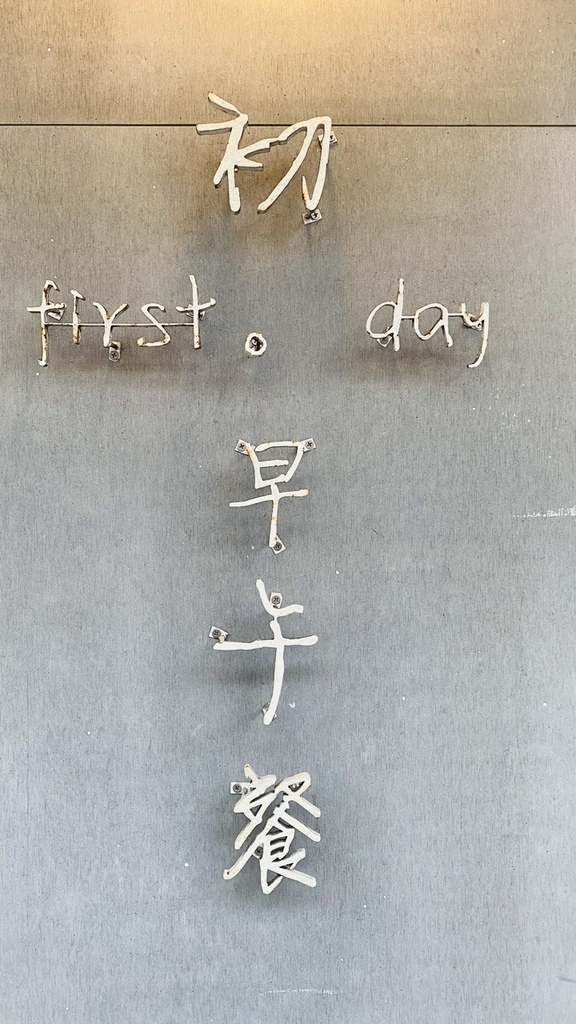 初
first. day
早
午
餐